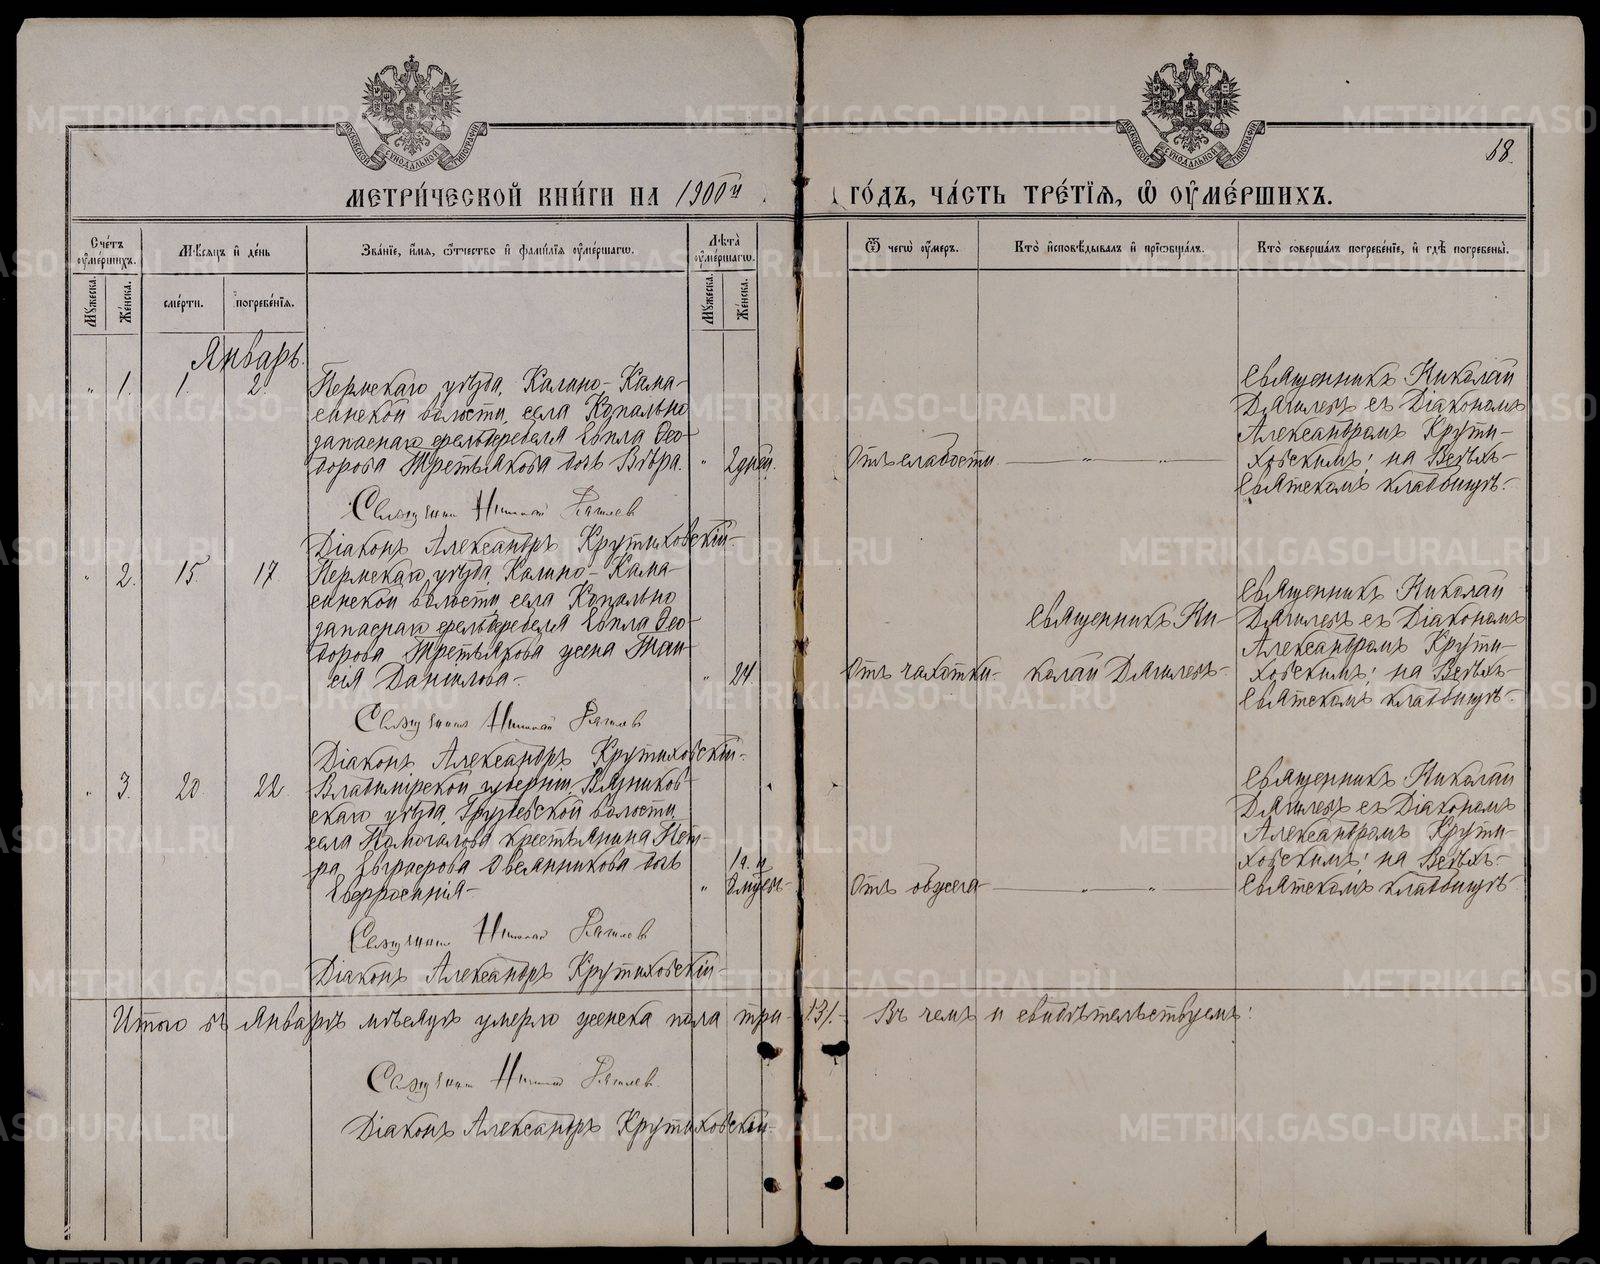 МЕТРИ́ЧЕСКОЙ КНИ́ГИ НА 1900й
ГО́ДЪ, ЧА́СТЬ ТРЕ́ТІѦ, Ѡ ОУМЕ́РШИХЪ.
18.
Сче́тъ оуме́ршихъ.
Мꙋжеска.
Же́нска.
Мѣ́сяцъ и де́нь
сме́рти.
погребе́нія.
Зва́ніе, и́мя, ѻ́тчество и фами́лія оуме́ршагѡ.
Лѣта̀ оуме́ршагѡ.
Мꙋжеска.
Же́нска.
Ѿ чегѡ̀ оу́меръ.
Кто̀ исповѣ́дывалъ и пріѡбща́лъ.
Кто̀ соверша́лъ погребе́ніе, и гдѣ̀ погребены̀.
Январь.
" 1. 1. 2.
Пермскаго уѣзда, Калино-Кама-
синской волости, села Копально
запаснаго фельдфебеля Евпла Ѳео-
дорова Третьякова дочь Вѣра. " 2 дней.
Отъ слабости. " "
Священникъ Николай
Дягилевъ съ Діакономъ
Александромъ Крути-
ховскимъ; на Верхъ-
святскомъ кладбищѣ.
Священникъ Николай Дягилев
Діаконъ Александръ Крутиховскій
" 2. 15. 17
Пермскаго уѣзда, Калино-Кама-
синской волости, села Копально
запаснаго фельдфебеля Евпла Ѳео-
дорова Третьякова жена Таи-
сія Данилова " 24
Отъ чахотки
Священникъ Ни-
колай Дягилевъ
Священникъ Николай
Дягилевъ съ Діакономъ
Александромъ Крути-
ховскимъ; на Верхъ-
святскомъ кладбищѣ.
Священникъ Николай Дягилев
Діаконъ Александръ Крутиховскій
" 3. 20. 22.
Владимірской губерніи, Вязников-
скаго уѣзда, Груздевской волости,
села Помогалова крестьянина Пет-
ра Евграфова Овсянникова дочь
Евфросинія " 1 г. и 8 мѣсяц.
Отъ обжега " "
Священникъ Николай
Дягилевъ съ Діакономъ
Александромъ Крути-
ховскимъ; на Верхъ-
святскомъ кладбищѣ
Священникъ Николай Дягилев
Діаконъ Александръ Крутиховскій
Итого въ Январѣ мѣсяцѣ умерло женска пола три /3/. Въ чемъ и свидѣтельствуемъ:
Священникъ Николай Дягилев.
Діаконъ Александръ Крутиховскій
METRIKI.GASO-URAL.RU